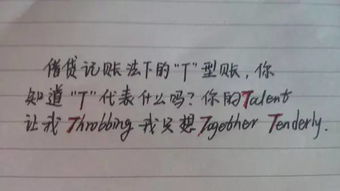 借贷记账法下的"T"型账,你
知道"T"代表什么吗?你的Talent
让我Throbbing我只想Together Tenderly.